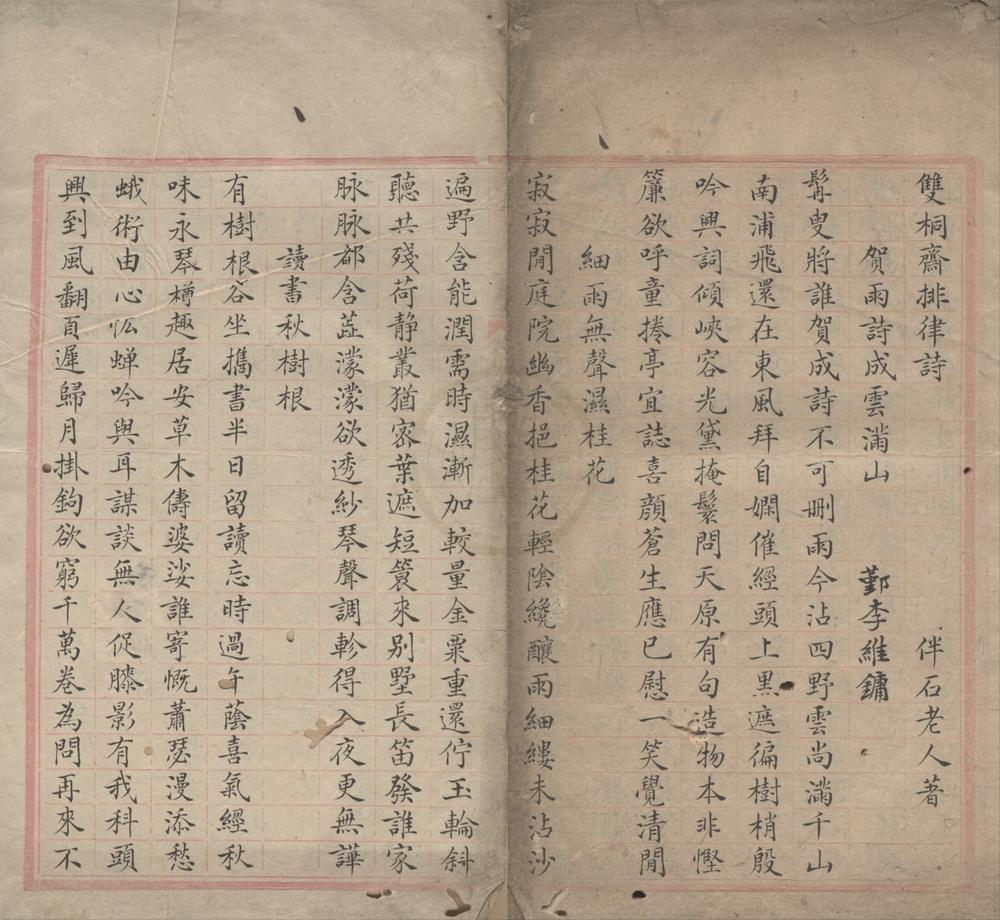 雙桐齋排律詩
伴石老人著
賀雨詩成雲滿山
鄞李維鏞
髯叟將誰賀成詩不可刪雨今沾四野雲尚滿千山
南浦飛還在東風拜自嫻催經頭上黑遮徧樹梢殷
吟興詞傾峽容光黛掩鬟問天原有句造物本非慳
簾欲呼童捲亭宜誌喜顔蒼生應已慰一笑覺清閒
細雨無聲濕桂花
寂寂閒庭院幽香挹桂花輕陰纔釀雨細縷未沾沙
遍野含能潤需時濕漸加較量金粟重還佇玉輪斜
聽共殘荷静叢猶密葉遮短簑來别墅長笛發誰家
脉脉都含蕋濛濛欲透紗琴聲調軫得入夜更無譁
讀書秋樹根
有樹根谷坐攜書半日留讀忘時過午蔭喜氣經秋
味永琴樽趣居安草木儔婆娑誰寄慨蕭瑟漫添愁
蛾術由心伀蟬吟與耳謀談無人促膝影有我科頭
興到風翻頁遲歸月掛鉤欲窮千萬卷為問再來不